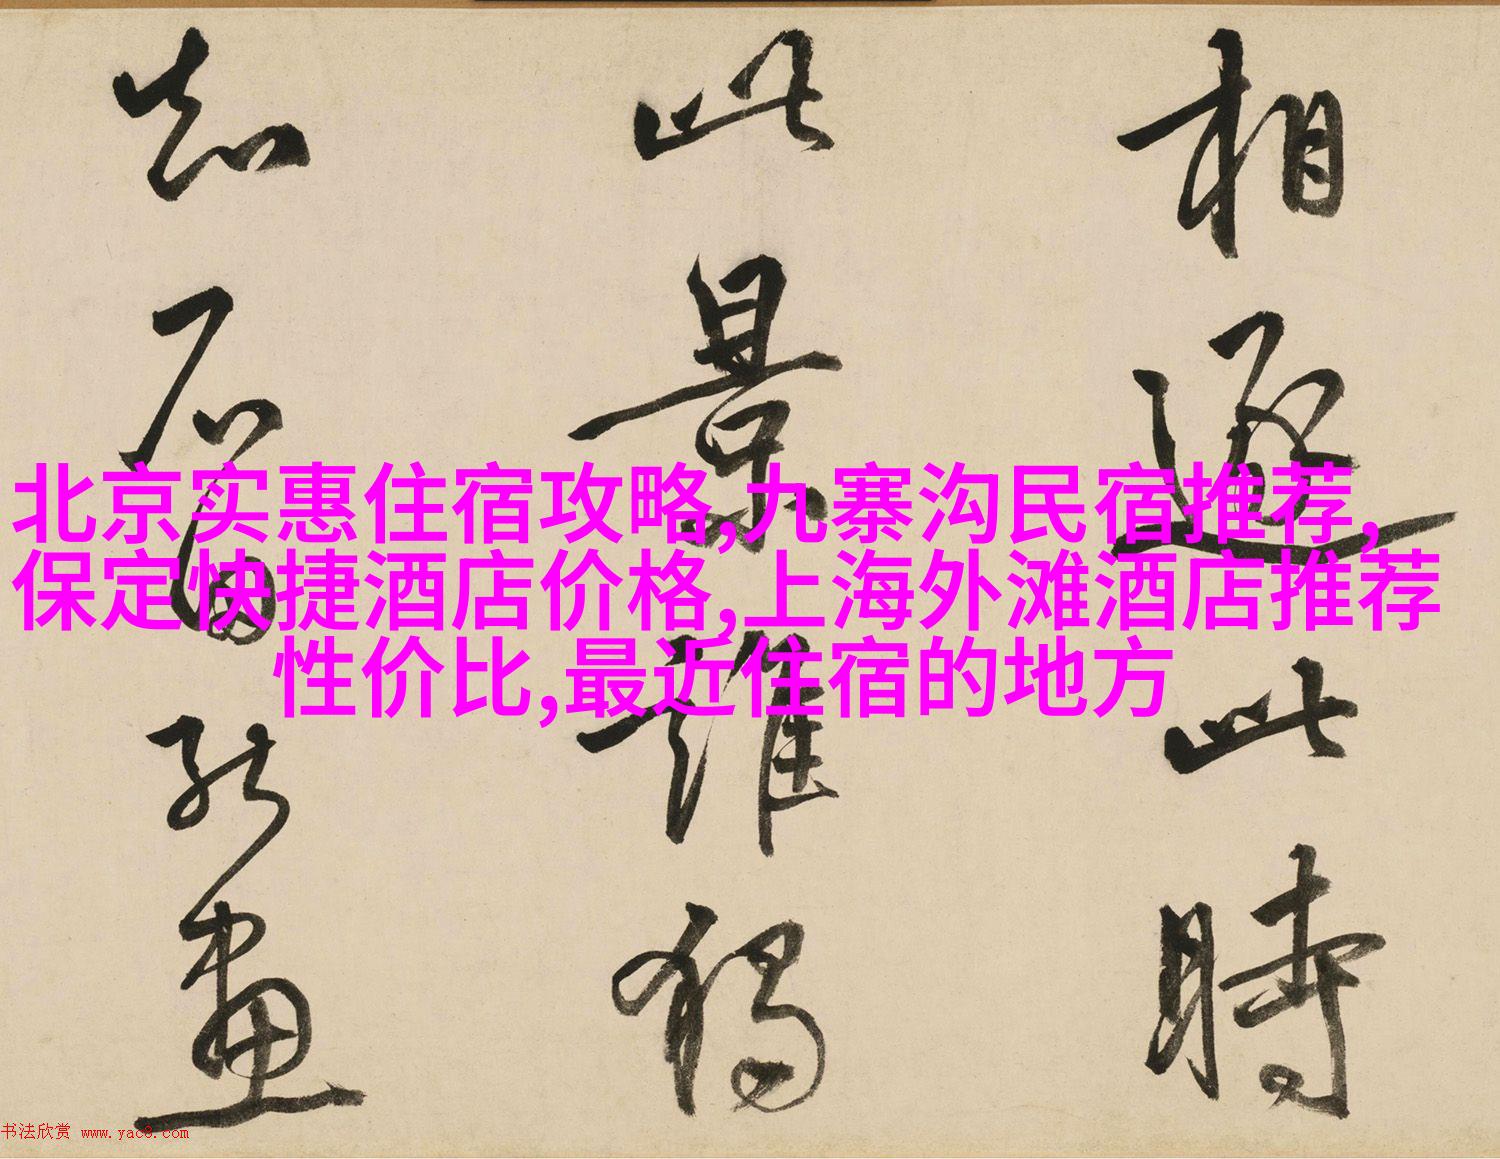 相逐此時
此景誰獨
知石田能畫
北京实惠住宿攻略,九寨沟民宿推荐,
保定快捷酒店价格,上海外滩酒店推荐
性价比,最近住宿的地方
书法欣赏 www.yac8.com